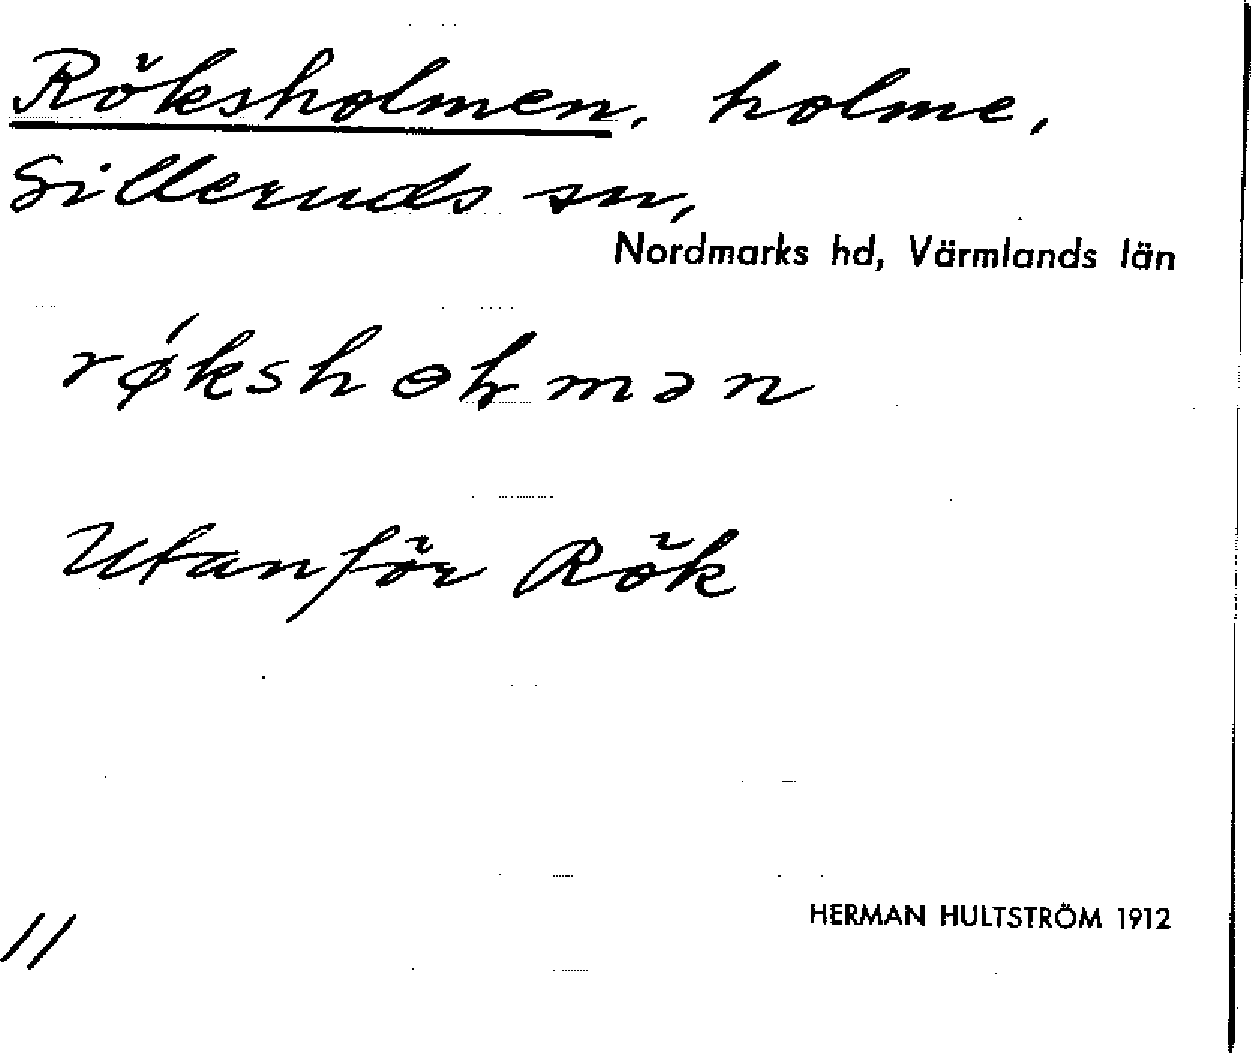 Röksholmen, holme,
Silleruds sn,
Nordmarks hd, Värmlands län
rǿkshɵɫmən
Utanför Rök
HERMAN HULTSTRÖM 1912
11